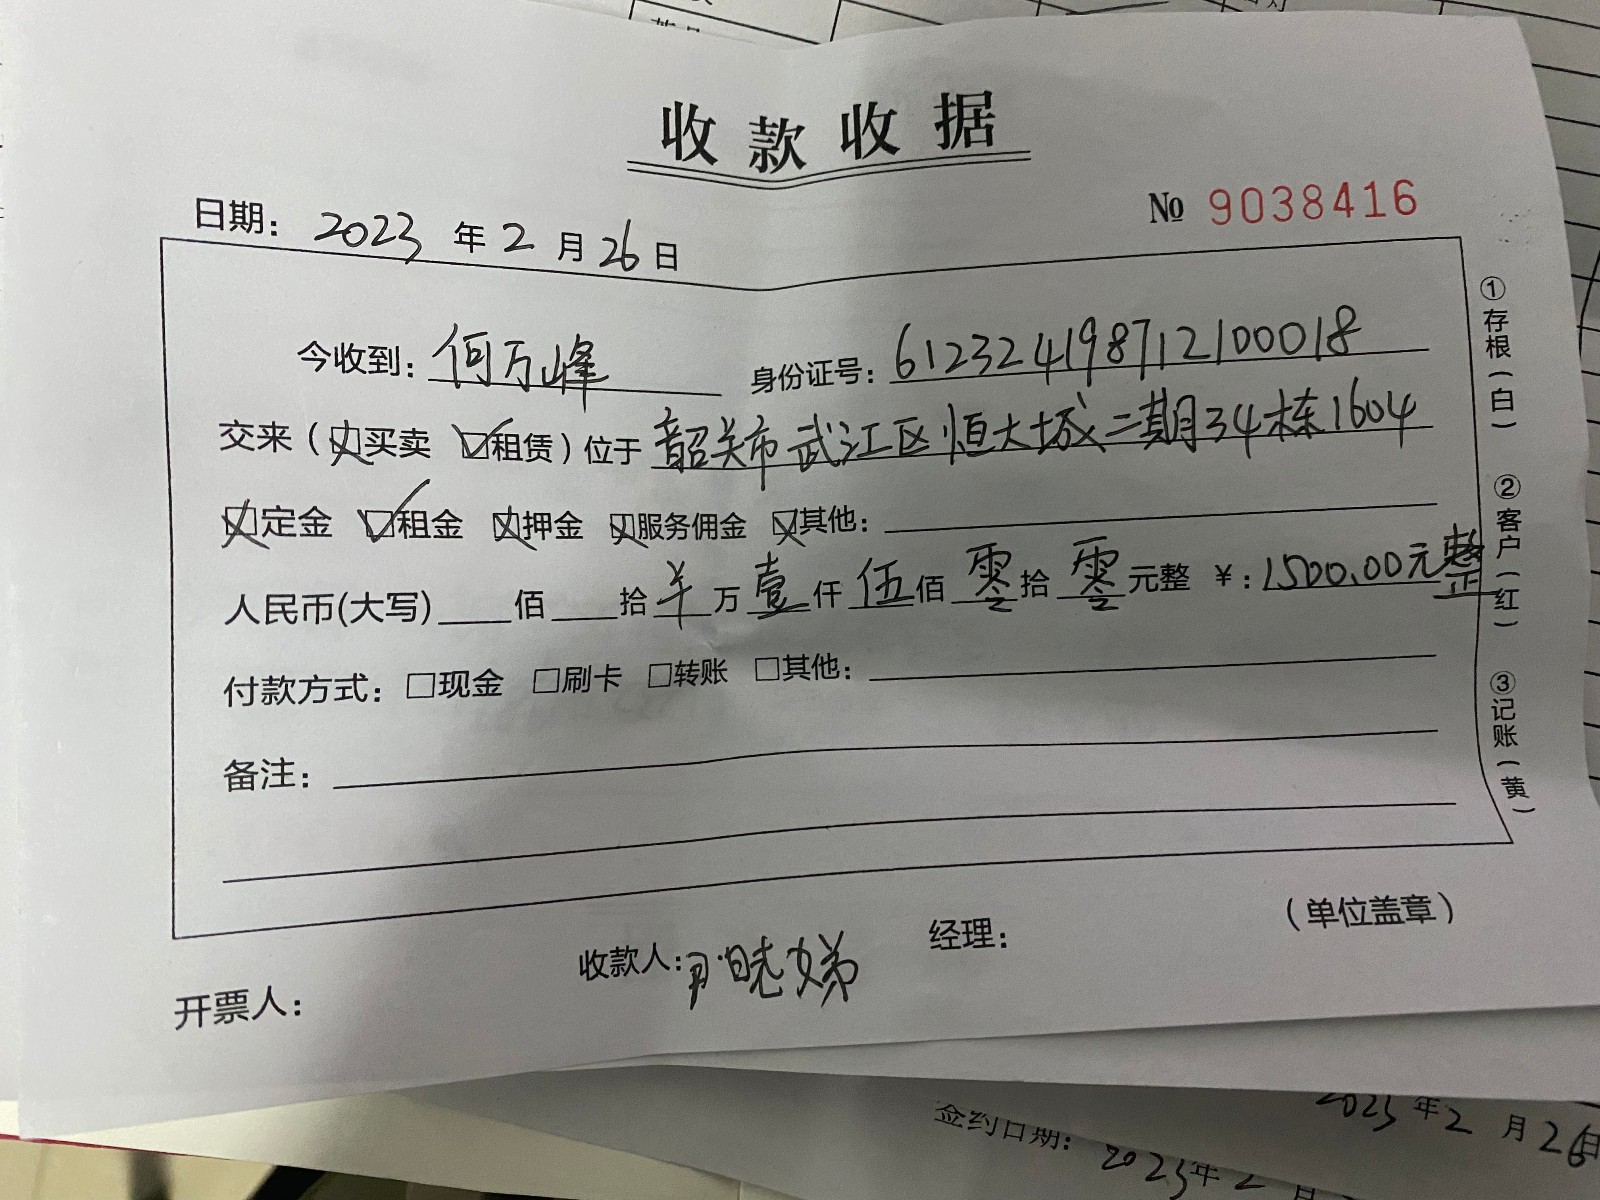 收款收据
№ 9038416
日期：2023年2月26日
今收到：何万峰 身份证号：612324198712100018
交来（☒买卖 ☑租赁）位于 韶关市武江区恒大城二期34栋1604
☒定金 ☑租金 ☒押金 ☒服务佣金 ☒其他：
人民币(大写)____佰____拾 羊 万 壹 仟 伍 佰 零 拾 零 元整 ￥：1500.00元整
付款方式：□现金 □刷卡 □转账 □其他：
备注：
①存根（白）
②客户（红）
③记账（黄）
开票人：
收款人： 晓娣
经理：
（单位盖章）
2023年2月26日
签约日期：2023年2